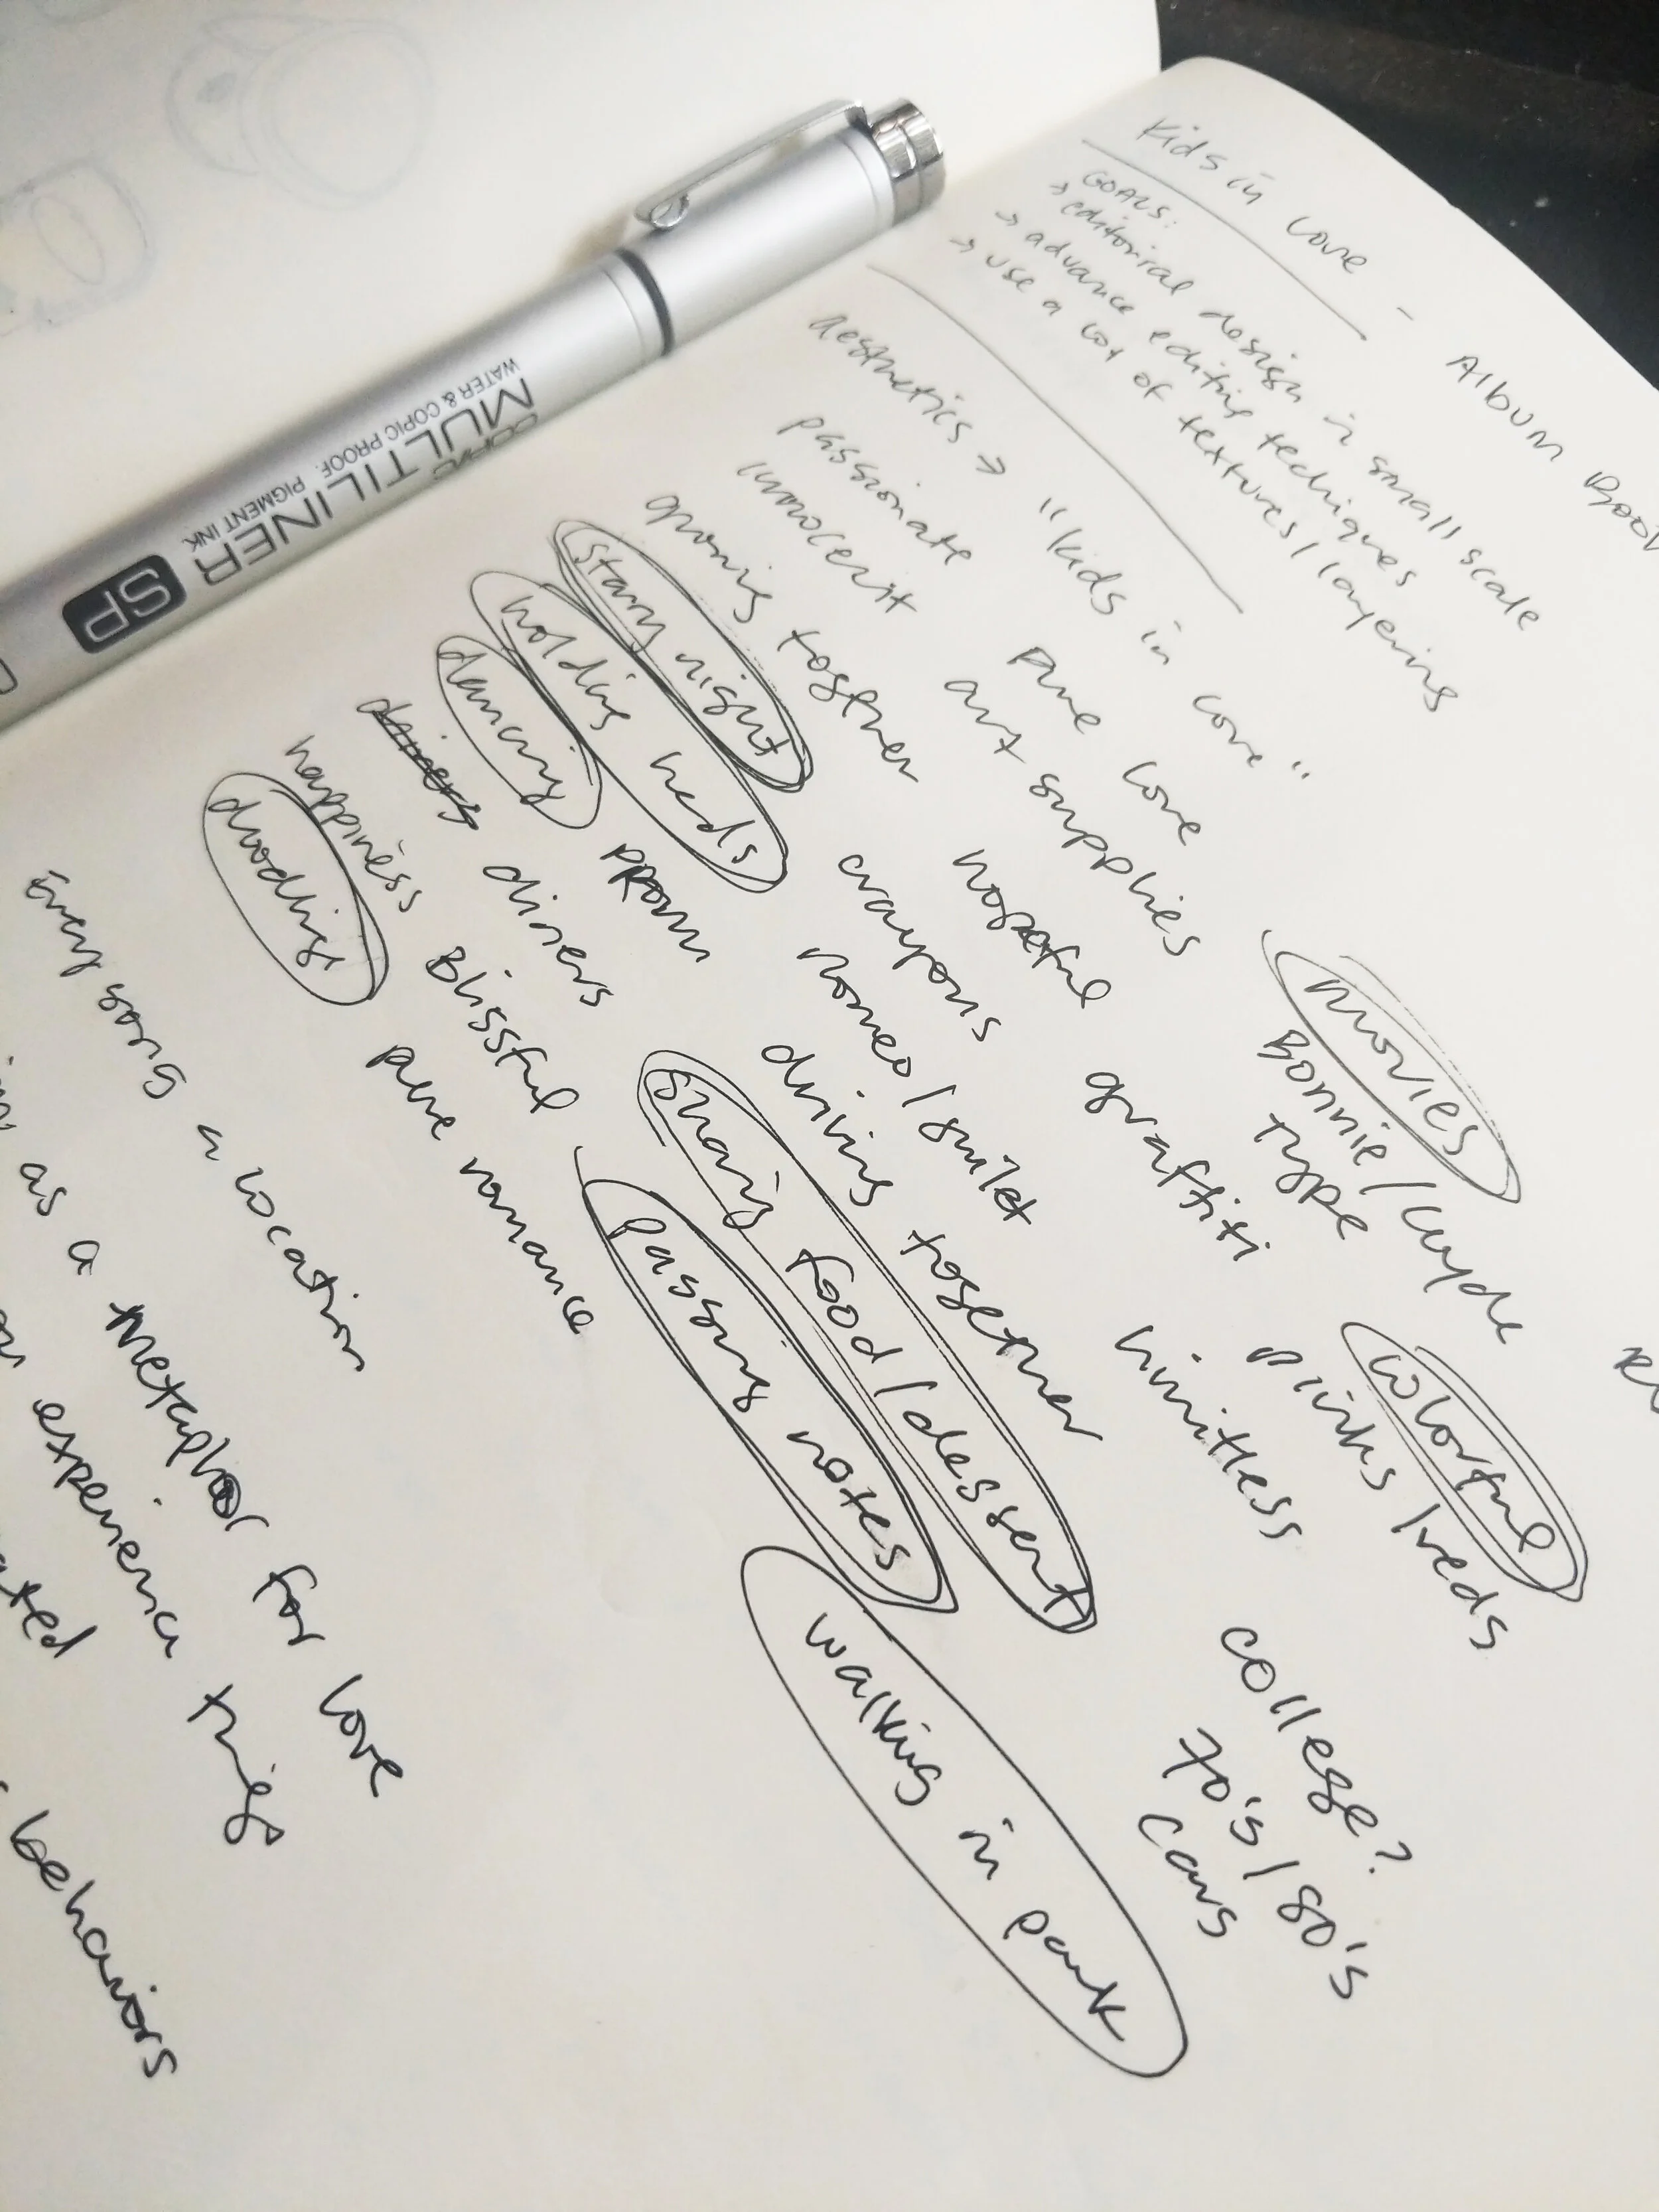 Kids in Love - Album Book
GOALS:
→ editorial design in small scale
→ advance editing techniques
→ use a lot of textures/layering
aesthetics → "kids in love"
passionate pure love movies
innocent art supplies Bonnie/Clyde type colorful
growing together hopeful graffiti pinks/reds
starry night crayons limitless college?
holding hands Romeo/Juliet 70's/80's cars
dancing PROM driving together
diners diners sharing food/dessert walking in park
happiness Blissful passing notes
doodling pure romance
Every song a location
as a metaphor for love
experience things
behaviors
COPIC
MULTILINER SP
WATER & COPIC PROOF. PIGMENT INK.